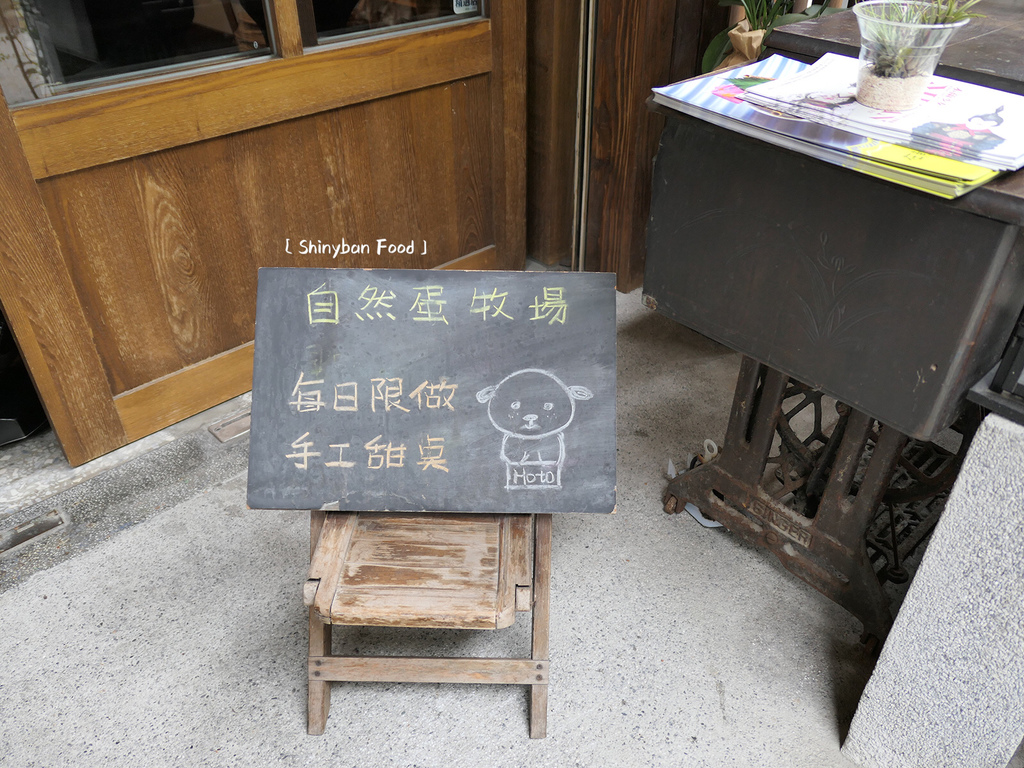 [ Shinyban Food ]
自然蛋牧場
每日限做
手工甜桌
Moto
SINGER